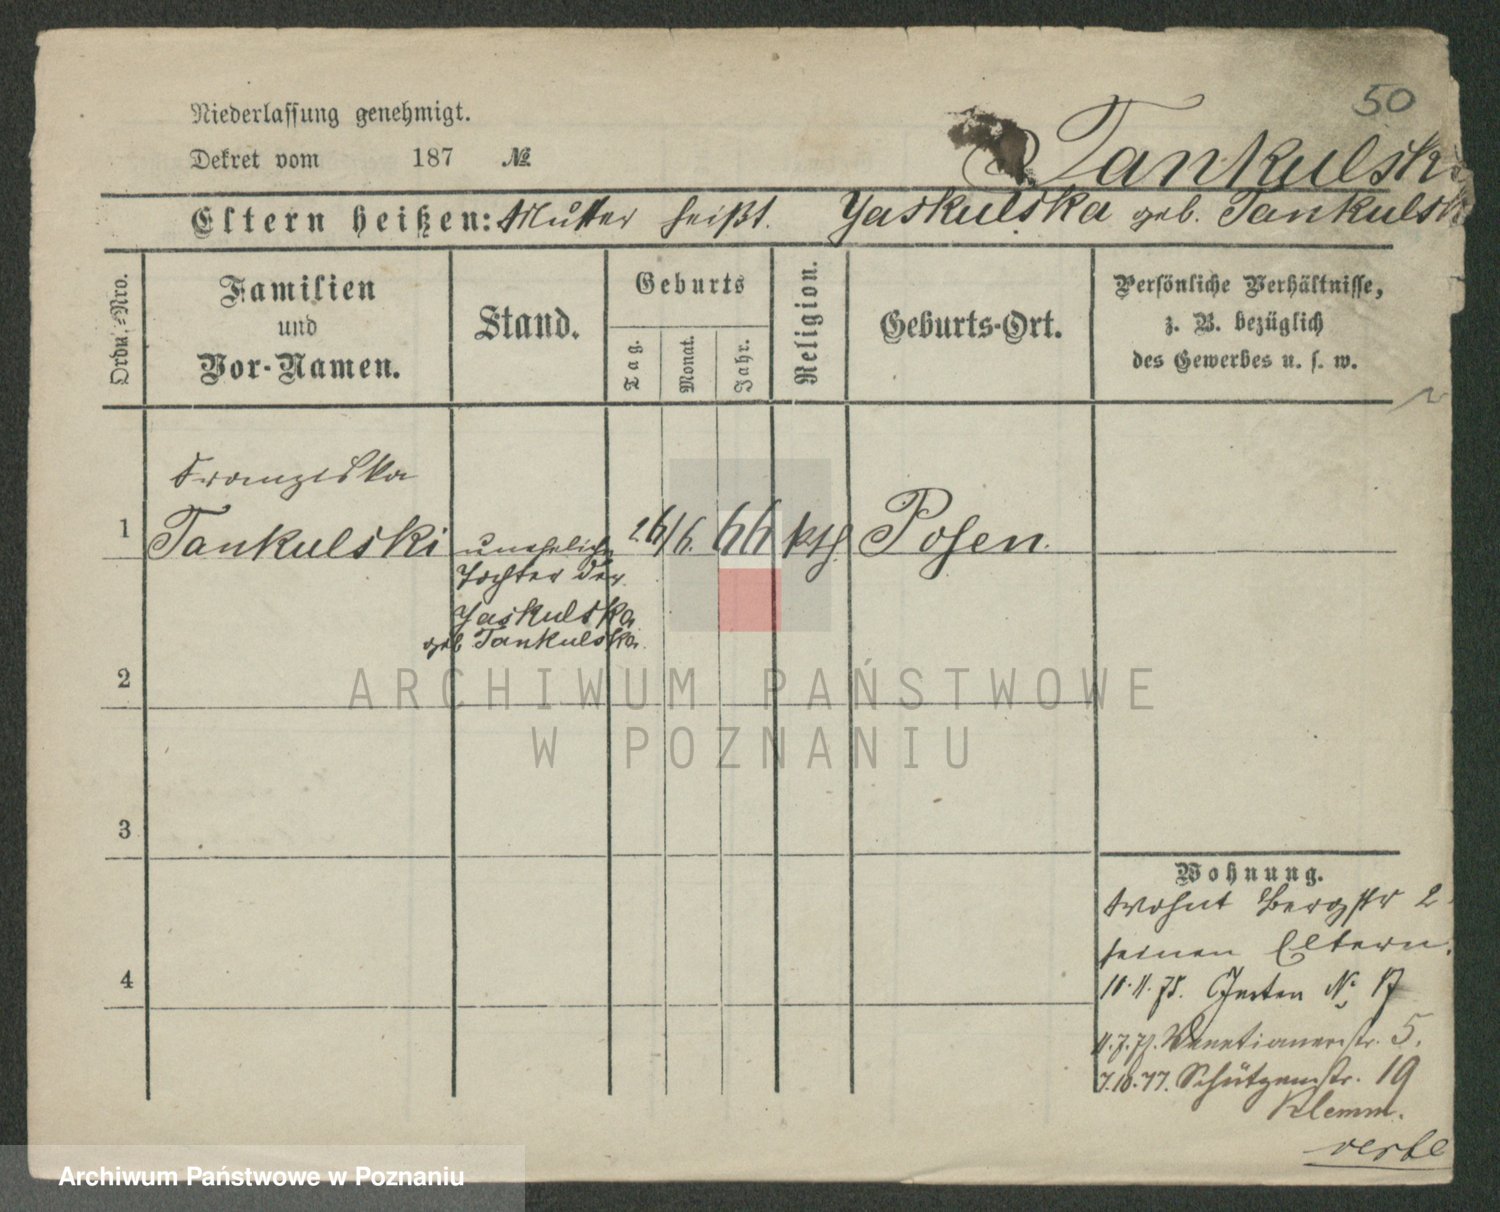 50
Niederlassung genehmigt.
Dekret vom 187 №
Tankulski
Eltern heißen: Mutter heißt. Yaskulska geb. Tankulski
Ordn.-Nro.
Familien
und
Vor-Namen.
Stand.
Geburts
Tag.
Monat.
Jahr.
Religion.
Geburts-Ort.
Persönliche Verhältnisse,
z. B. bezüglich
des Gewerbes u. s. w.
Franziska
1 Tankulski unehelich 26/6. 66 kth. Posen.
Tochter der
Yaskulska
geb Tankulska.
2
3
4
Wohnung.
wohnt Bergstr 2
seinen Eltern.
10.11.75. Gerten № 17
11.7.77. Venetianerstr. 5.
7.10.77. Schützenstr. 19
Klemm.
verte
ARCHIWUM PAŃSTWOWE
W POZNANIU
Archiwum Państwowe w Poznaniu